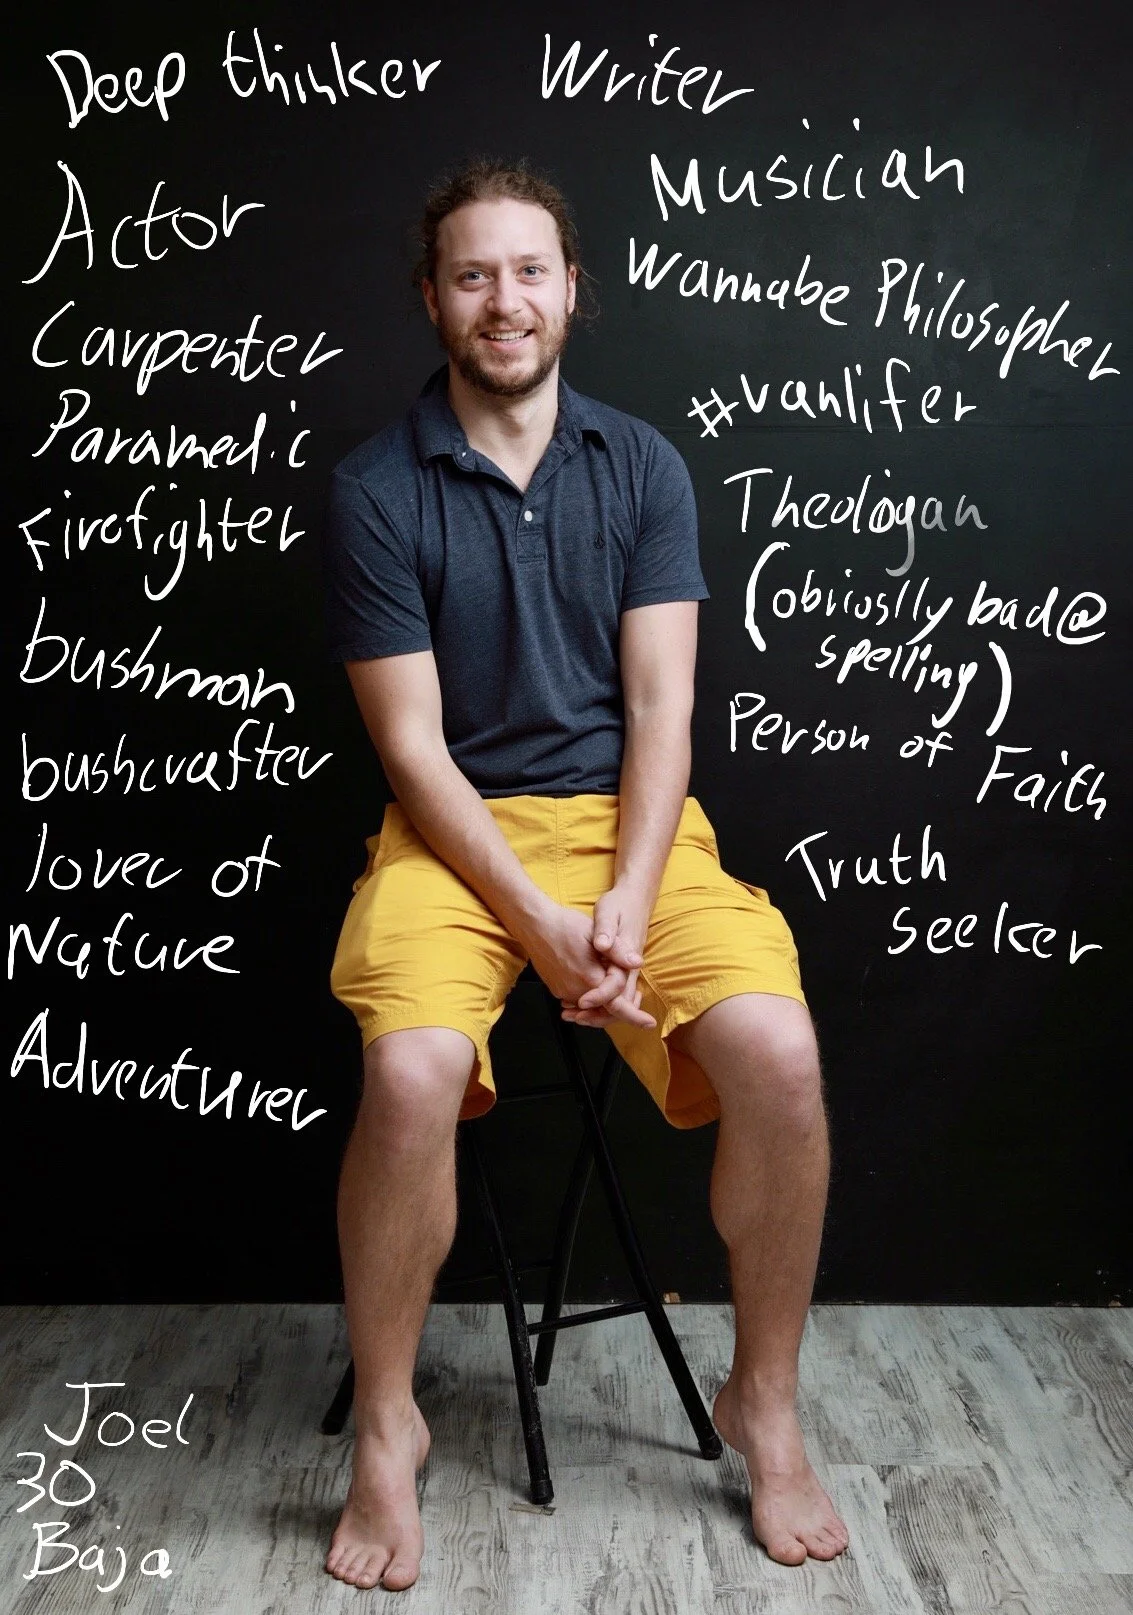 Deep thinker
Writer
Actor
Carpenter
Paramedic
Firefighter
bushman
bushcrafter
lover of
Nature
Adventurer
Musician
Wannabe Philosopher
#vanlifer
Theologan
(obviouslly bad@
spelling)
Person of Faith
Truth
seeker
Joel
30
Baja